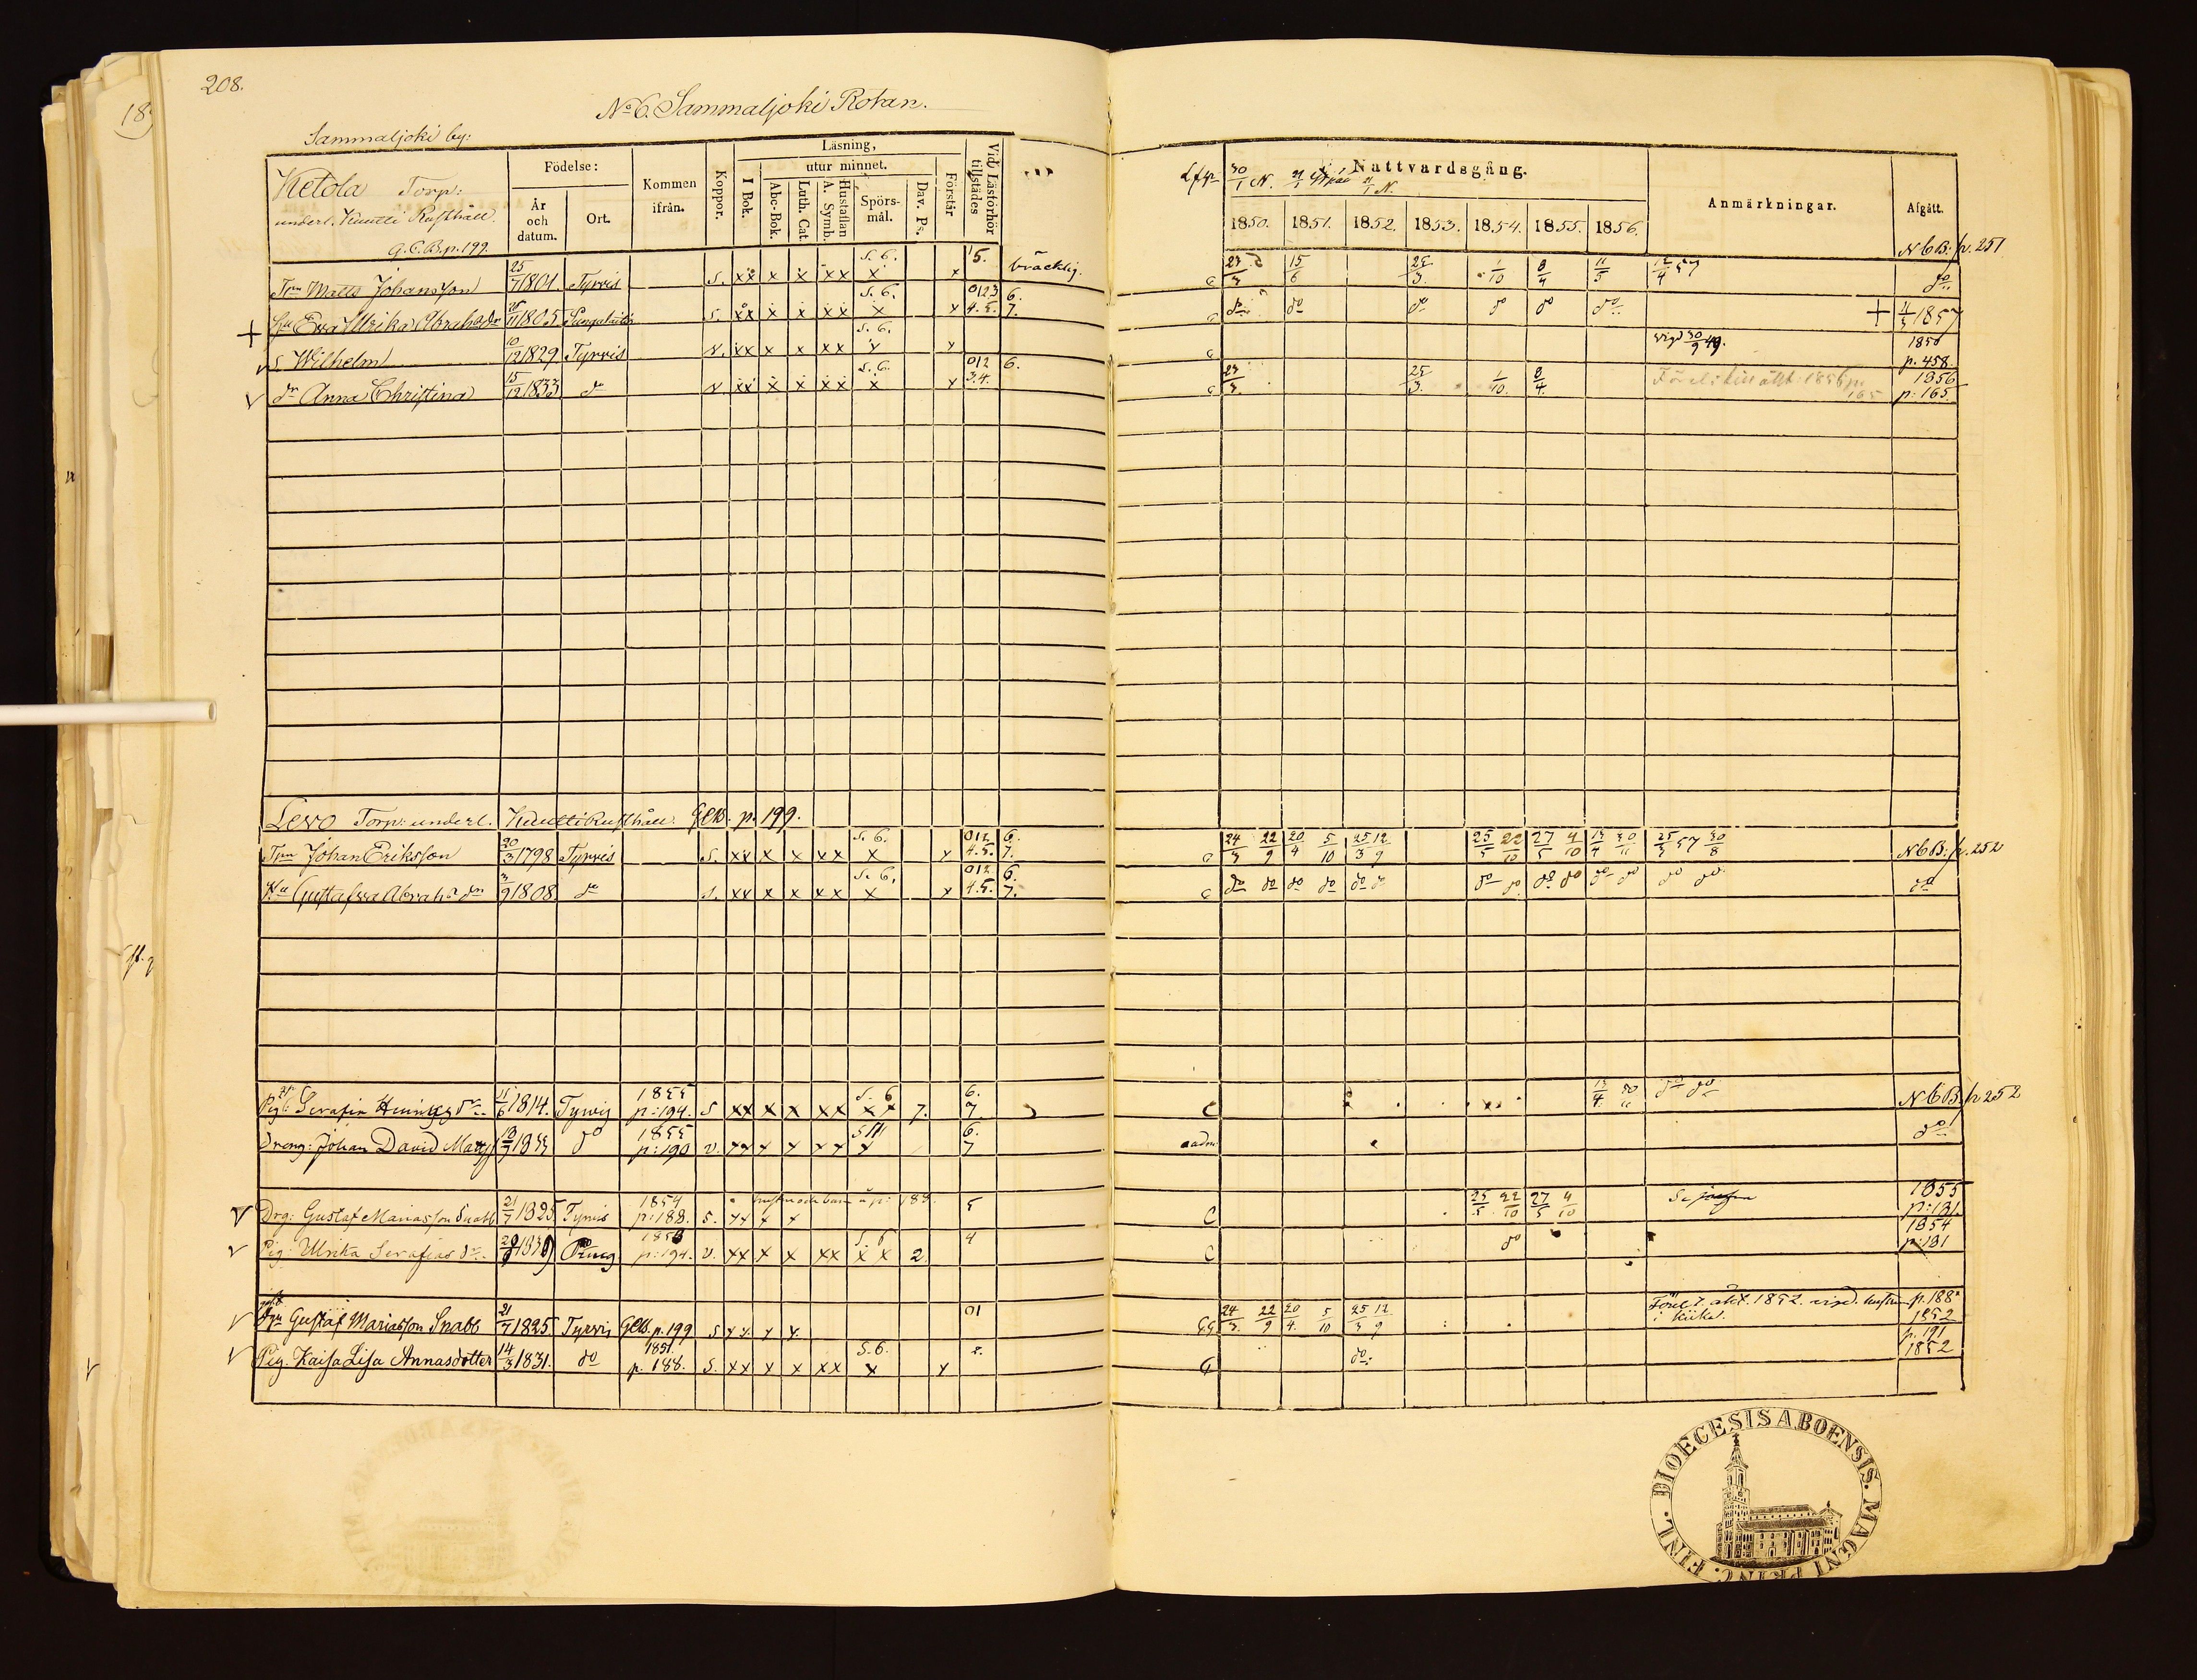 208.
No 6. Sammaljoki Rotan.
Sammaljoki by:
Ketola Torp:
underl. Kuutti Rusthåll.
G.C.B. p. 199.
Födelse:
År och datum.
Ort.
Kommen ifrån.
Koppor.
Läsning,
I Bok.
utur minnet.
Abc-Bok.
Luth. Cat.
A. Symb.
Hustaflan
Spörs-mål.
Dav. Ps.
Förstår
Vid Läsförhör tillstädes
Nattvardsgång.
1850. 1851. 1852. 1853. 1854. 1855. 1856.
Anmärkningar.
Afgått.
Tpn Matts Johansson 25/7 1801 Tyrvis S. xx x x xx S. 6. x x 5. bräcklig. 23/3 15/6 25/3. 1/10 8/4 11/5 12/4 57 N C B: p. 251
Hu Eva Ulrika Abrah:dr 1805 S. xx x x xx S. 6. x x 0123 4.5. 6. 7. do do do do do + 4/3 1857 do
s. Wilhelm 10/12 1829 Tyrvis V. xx x x xx S. 6. x x vigd 30/9 49. 1850 p. 458
dr Anna Christina 15/12 1833 do V. xx x x xx S. 6. x x 012 3.4. 6. 23/3. 25/3. 1/10. 8/4. 1856 p: 165.
Levo Torp: underl. Kuutti Rusthåll. GCB. p. 199.
Tpn Johan Eriksson 20/3 1798 Tyrvis S. xx x x xx S. 6. x x 012 4.5. 6. 7. 24/3 22/9 20/4 5/10 25/3 12/9 25/5 22/10 27/5 4/10 25/3 57 30/8 N C B: p. 252
Hu Gustafva Abrah:dr 3/9 1808. do S. xx x x xx S. 6. x x 012 4.5. 6. 7. do do do do do do do do do do do do do do do
Pig: Serafia 11/6 1814. Tyrvis 1855 p: 194. S xx x x xx S. 6 xx 7. 6. 7. C do do N C B. p 252
Dreng: Johan David Matts do 1855 p: 190 v. xx x x xx x 6. 7 do
Drg: Gustaf Mariasson Snabb 21/7 1825 Tyrvis 1854 p: 188. S. xx x x 5 C 25/5. 22/10 27/5 4/10 1855 p: 131.
Pig: Ulrika Serafias dr Pung. p: 194. v. xx x x xx S. 6 x x 2. 4 C do 1854 p: 131
Drg Gustaf Mariasson Snabb 21/7 1825 Tyrvis GCB. p. 199 S xx x x 01 24/3. 22/9 20/4. 5/10 25/3 12/9 1852. vigd. p. 188 1852
Pig. Kaisa Lisa Annasdotter 14/3 1831. do 1851. p. 188. S. xx x x xx S. 6. x x 2. do: p. 191 1852
DIOECESIS ABOENSIS. MAGNI PRINC. FINL.